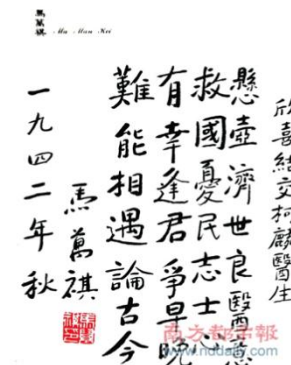 馬萬祺
Ma Man Kei
欣喜結交柯麟醫生
懸壺濟世良醫意
救國憂民志士心
有幸逢君爭早晚
難能相遇論古今
馬萬祺
一九四二年秋
南方都市报
www.nddaily.com